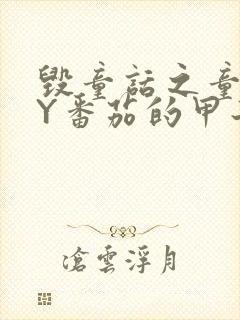 毁童话之童
Y番茄的甲
滄雲浮月